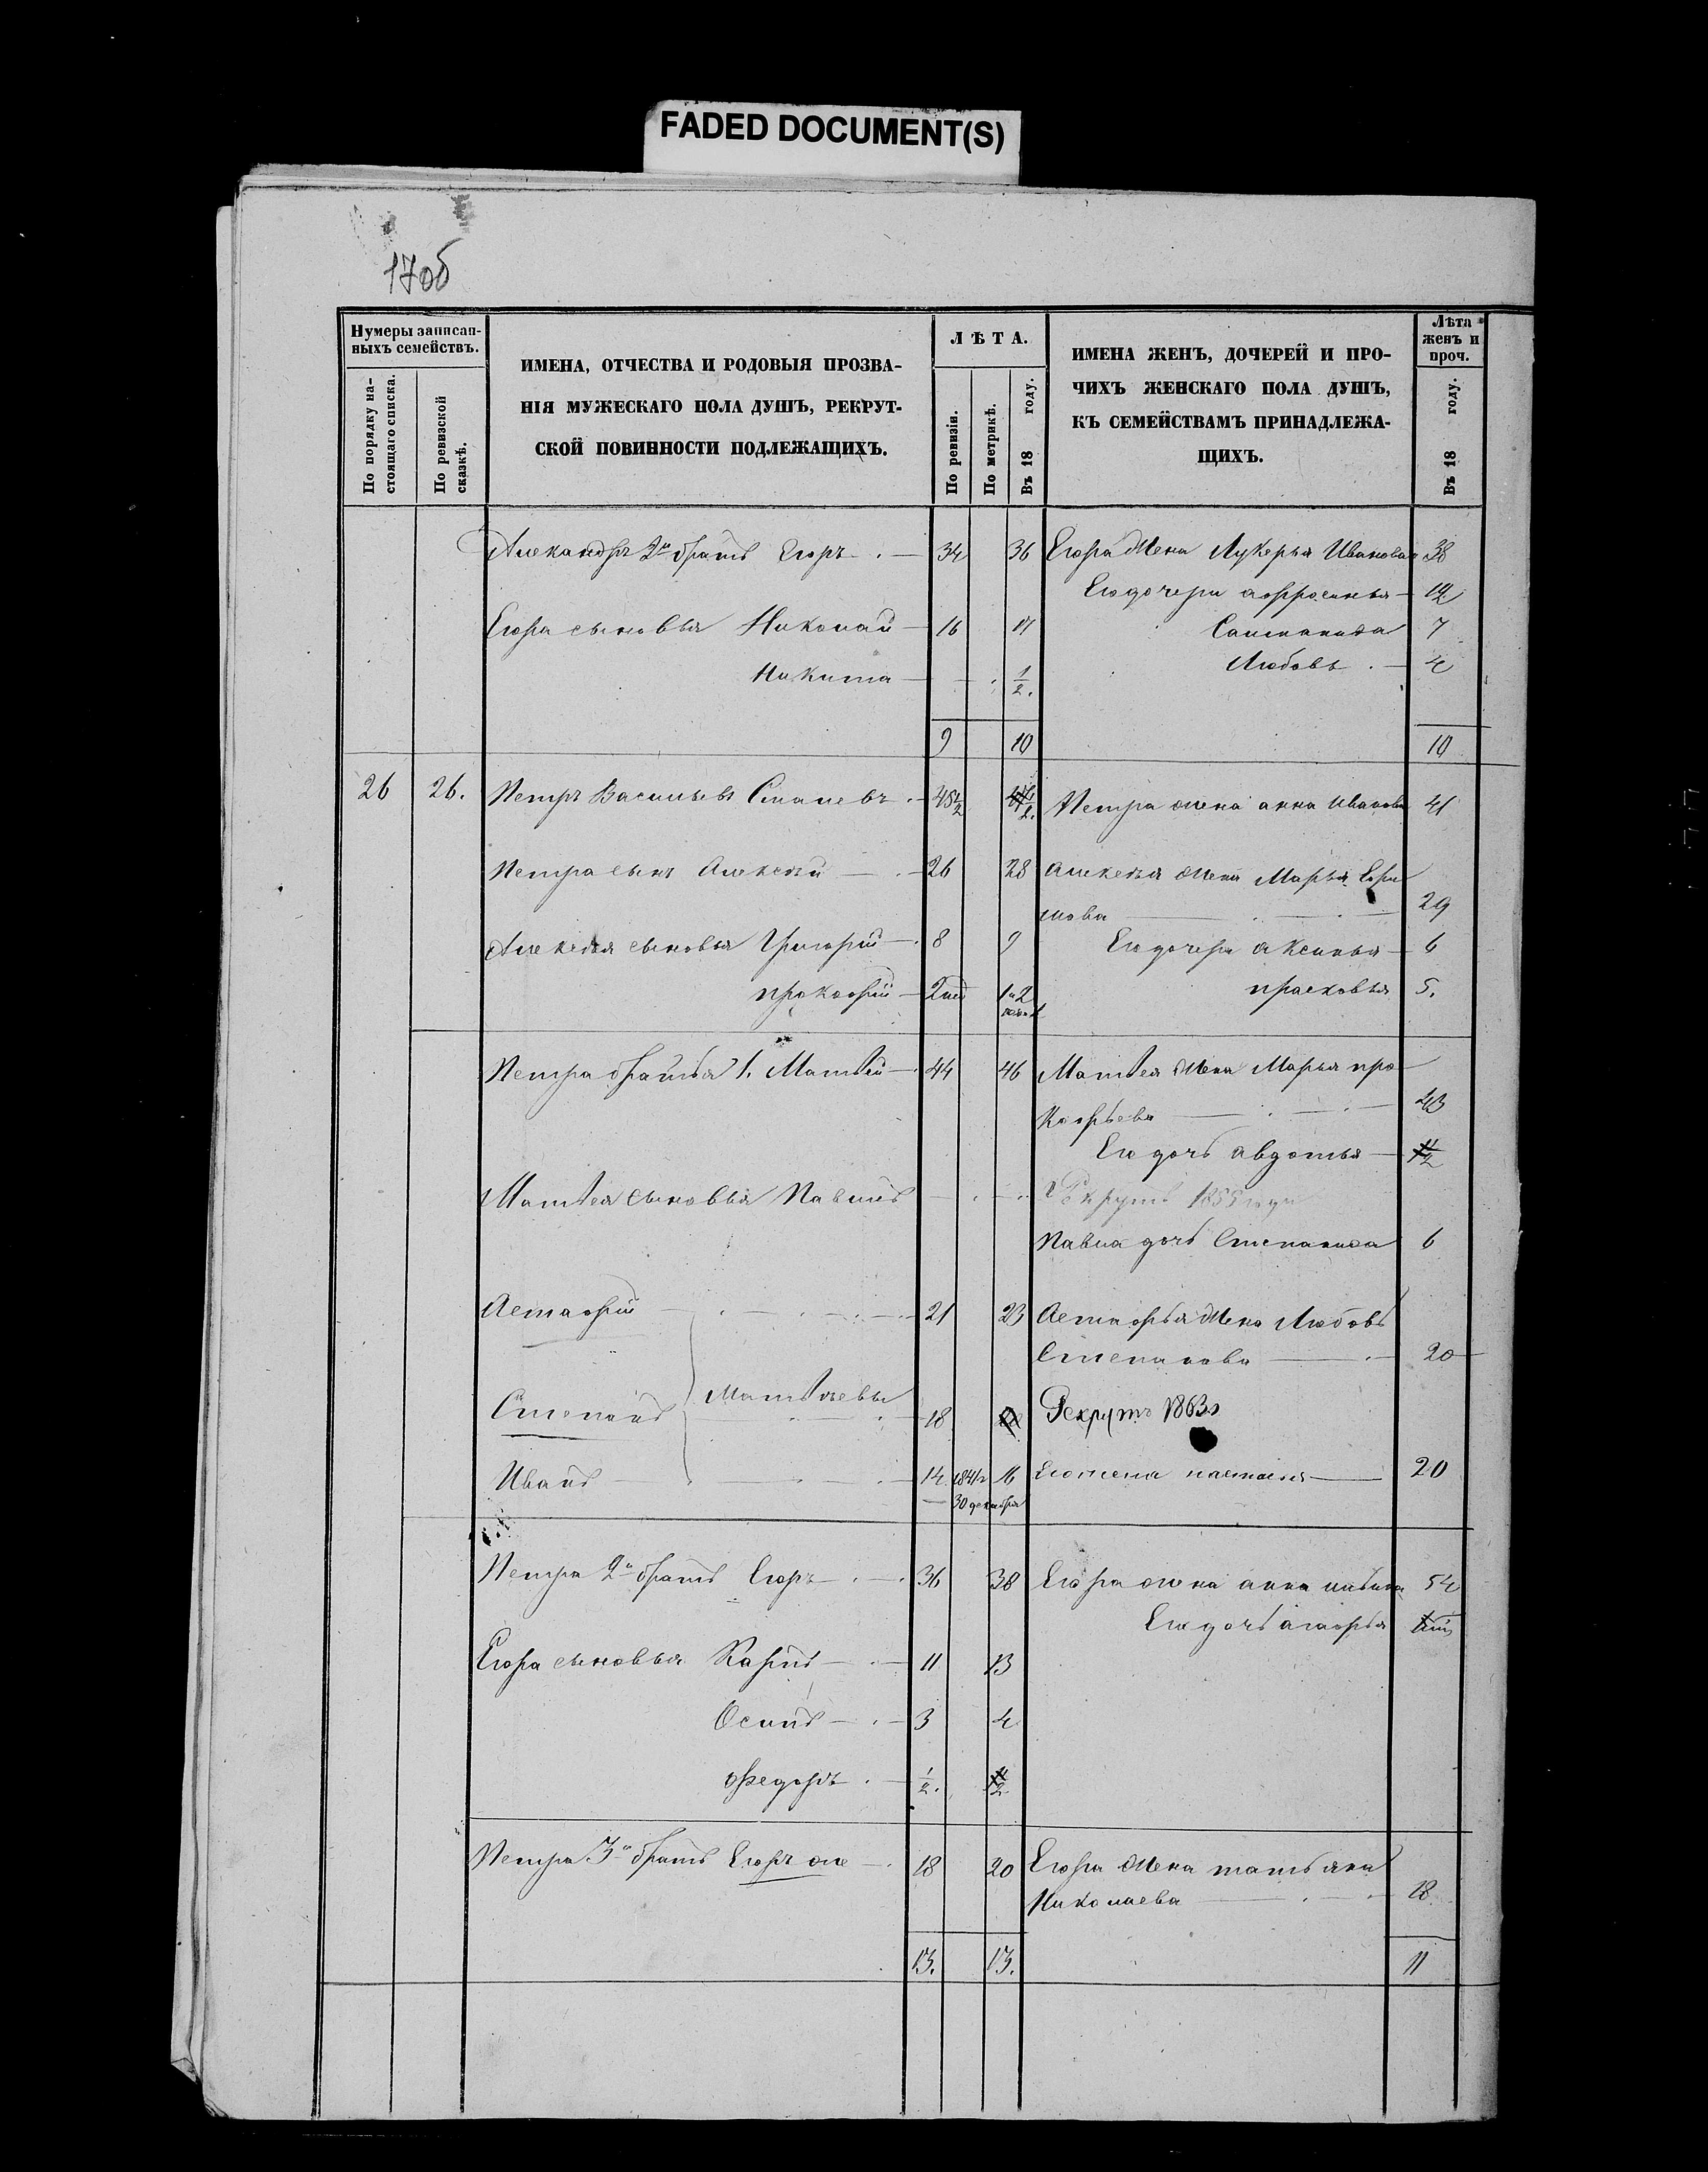 FADED DOCUMENT(S)
17об
Нумеры записан-
ныхъ семействъ.
По порядку на-
стоящаго списка.
По ревизской
сказкѣ.
ИМЕНА, ОТЧЕСТВА И РОДОВЫЯ ПРОЗВА-
НІЯ МУЖЕСКАГО ПОЛА ДУШЪ, РЕКРУТ-
СКОЙ ПОВИННОСТИ ПОДЛЕЖАЩИХЪ.
ЛѢТА.
По ревизіи.
По метрикѣ.
Въ 18 году.
ИМЕНА ЖЕНЪ, ДОЧЕРЕЙ И ПРО-
ЧИХЪ ЖЕНСКАГО ПОЛА ДУШЪ,
КЪ СЕМЕЙСТВАМЪ ПРИНАДЛЕЖА-
ЩИХЪ.
Лѣта
женъ и
проч.
Въ 18 году.
Александръ 2й братъ Егоръ 34 36 Егора жена Лукерья Иванова 38
Его дочери афросинья 12
Егора сыновья Николай 16 Степанида 7
Никита 1/2. Любовь 4
9 10 10
26 26. Петръ Васильевъ 45 1/2 Петра жена анна иванова 41
Петра сынъ Алексѣй 26 28 Алексѣя жена Марья Ефи
мова 29
Алексѣя сыновья Григорій 8 9 Его дочери аксинья 6
прокофій прасковья 5.
Петра братья 1. Матвѣй 44 46 Матвея жена Марья про
кофьева 43
Его дочь авдотья
Матвея сыновья Павелъ Рекрутъ 1855 года
Павла дочь Степанида 6
Астафій 21 23 Астафья жена Любовь
Степанова 20
Матвѣевы
Степанъ 18 Рекрутъ 1863
Иванъ 14 16 Его жена настасья 20
30 декабря
Петра 2й братъ Егоръ 36 38 Егора жена анна 54
Его дочь агафья
Егора сыновья Карпъ 11 13
Осипъ 3 4
Федоръ 1/2.
Петра 3й братъ Егоръ же 18 20 Егора жена татьяна
Николаева 18
13. 13. 11